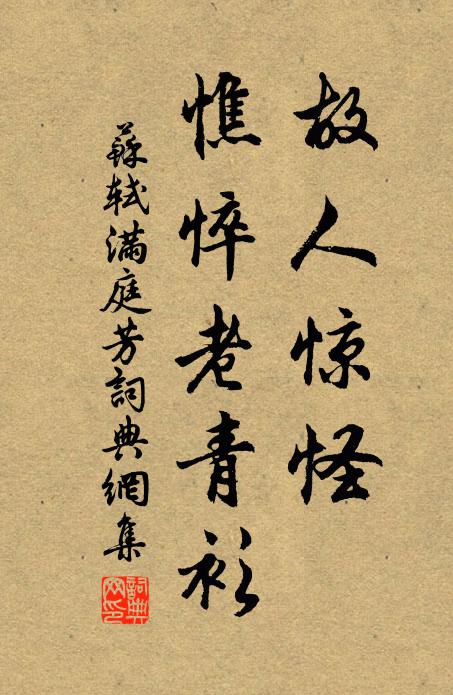 故人惊怪
憔悴老青衫
蘇軾滿庭芳詞典網集
詞典网印